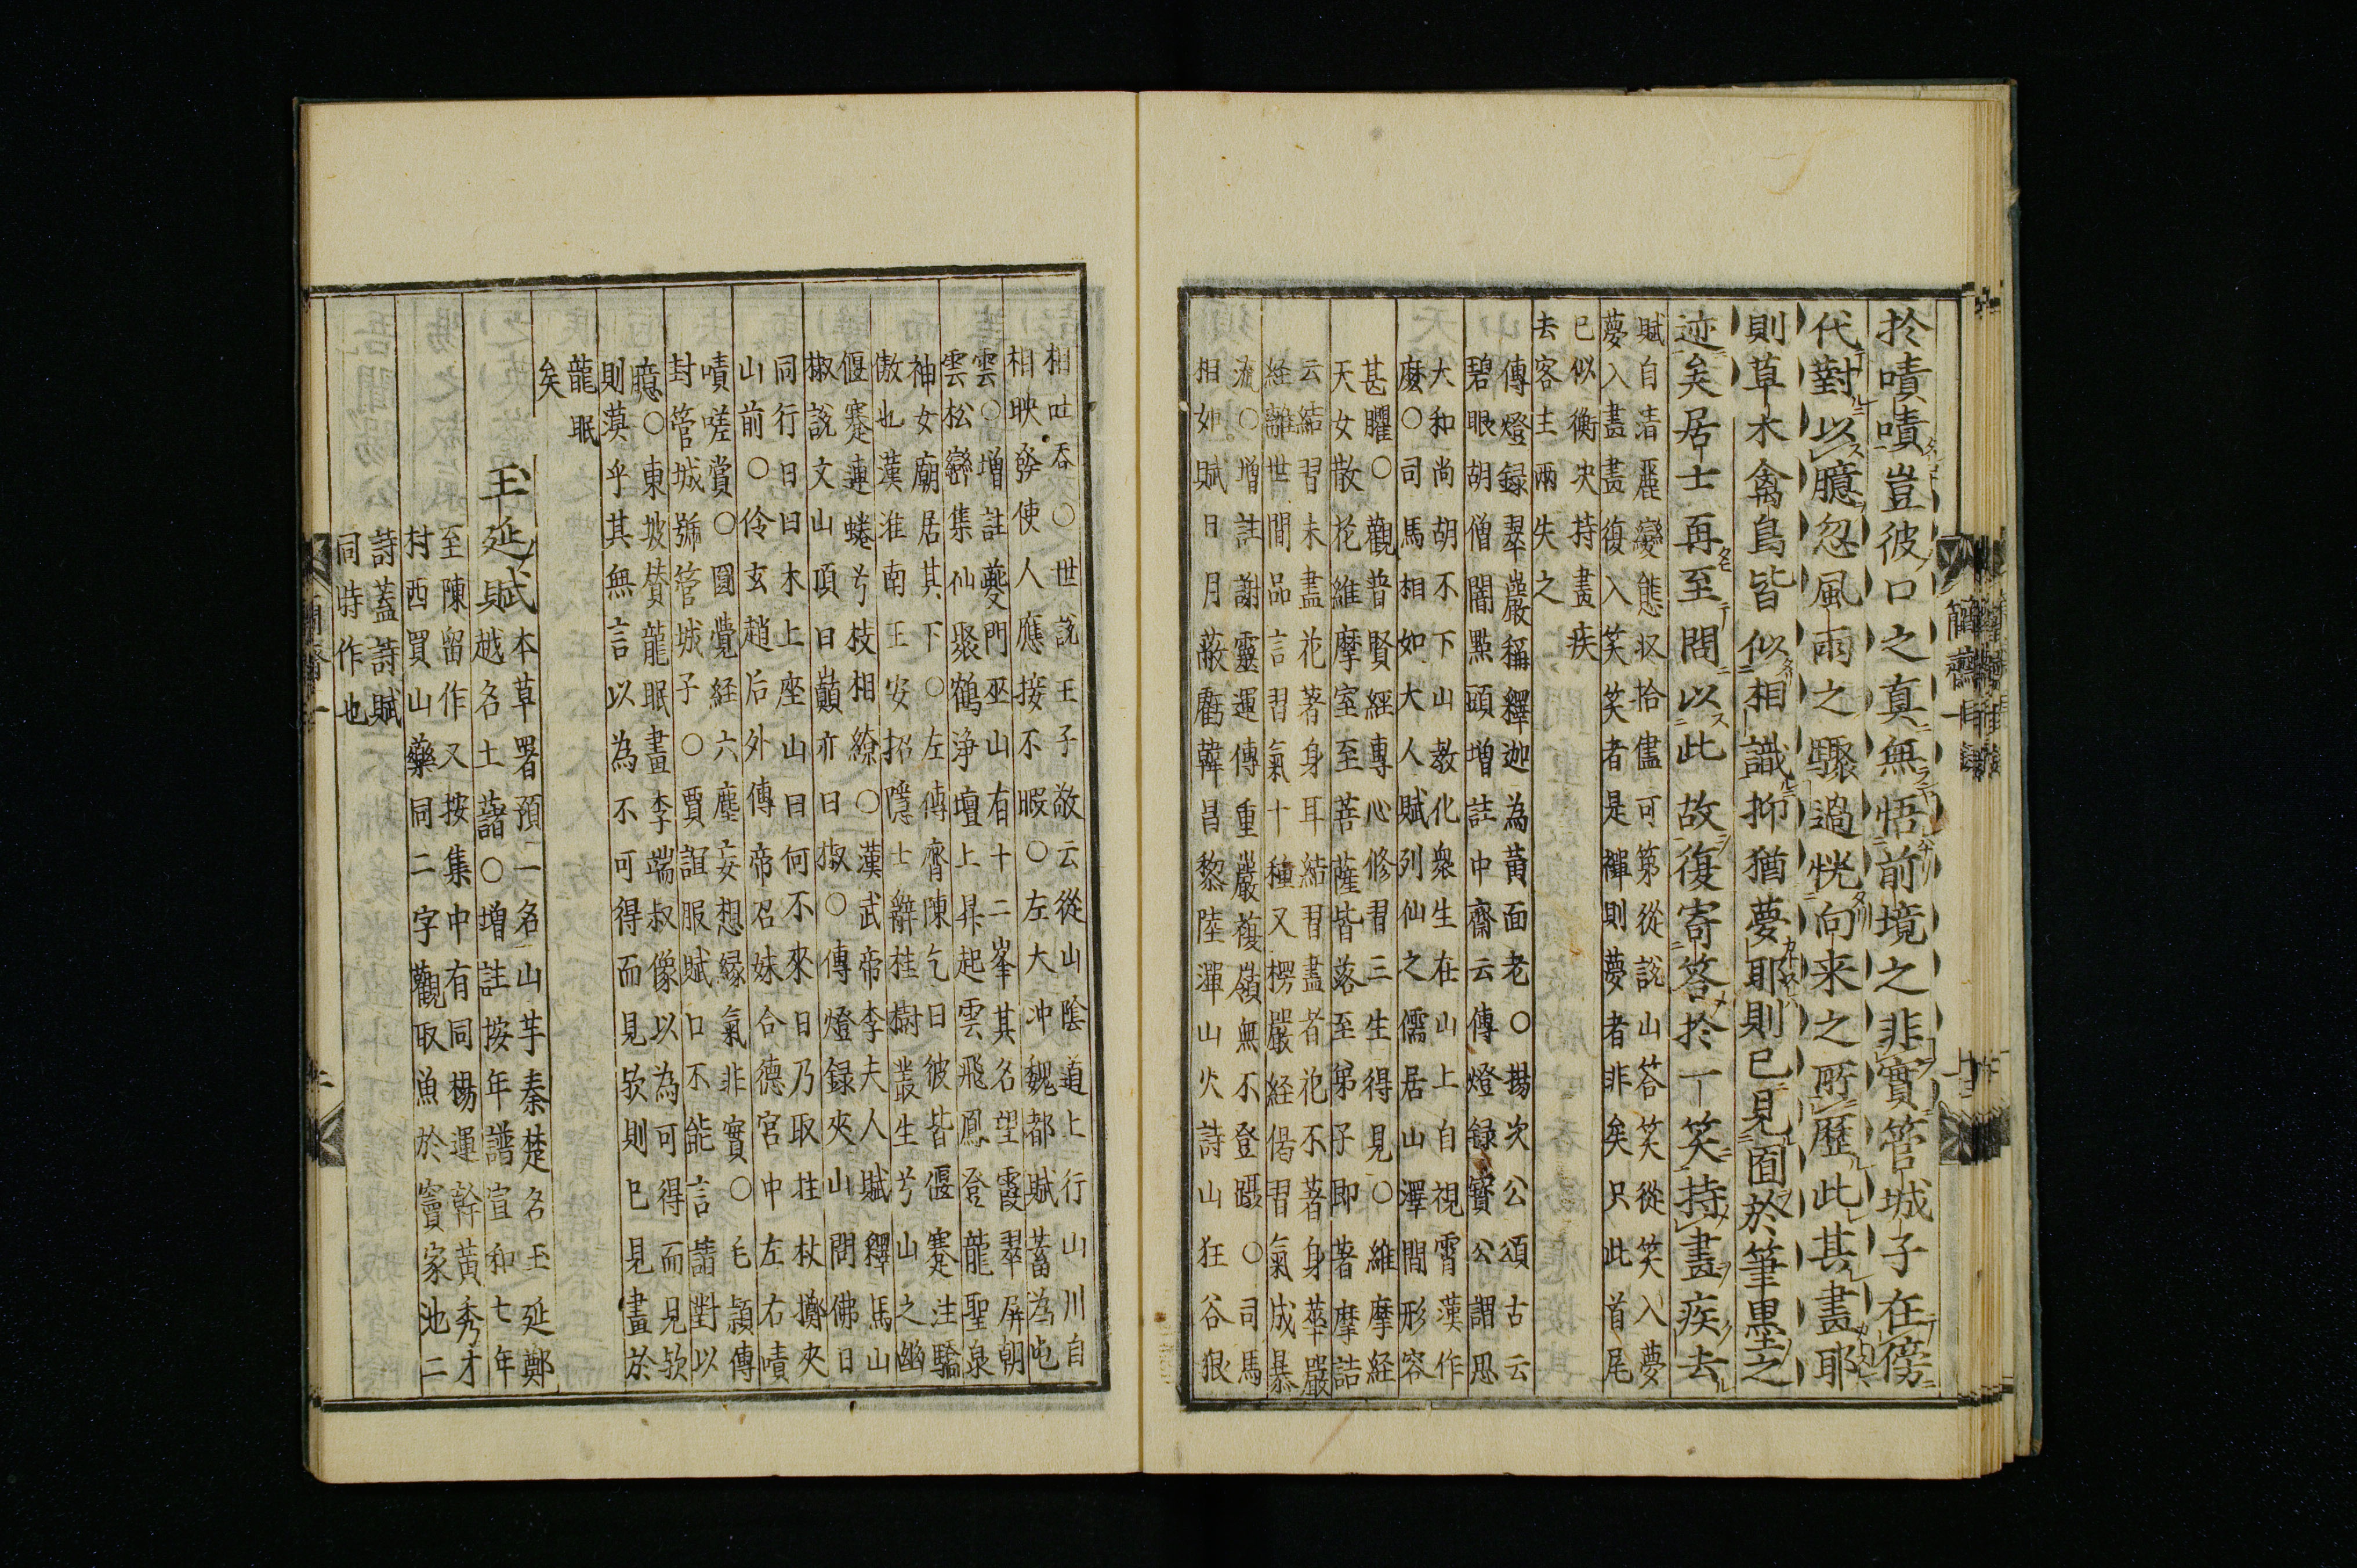 於嘖嘖豈彼口之真無悟前境之非實管城子在傍
代對以臆忽風雨之驟過恍向来之所歴此其畫耶
則草木禽鳥皆似相識抑猶夢耶則已見囿於筆墨之
迹矣居士再至問以此故復寄答於一笑持畫疾去
賦自清麗變態収拾儘可第從說山答笑從笑入夢
夢入畫畫復入笑笑者是禪則夢者非矣只此首尾
已似衡决持畫疾
去客主兩失之
傳燈録翠巖稱釋迦為黄面老〇楊次公頌古云
碧眼胡僧闇點頭増註中齋云傳燈録寶公謂思
大和尚胡不下山教化衆生在山上白視霄漢作
麽〇司馬相如大人賦列仙之儒居山澤間形容
甚臞〇觀普賢經專心修習三生得見〇維摩経
天女散花維摩室至菩薩皆落至弟子即著摩詰
云結習未盡花著身耳結習盡者花不著身華嚴
経離世間品言習氣十種又楞嚴経偈習氣成暴
流〇増註謝靈運傳重巖複嶺無不登躡〇司馬
相如賦日月蔽虧韓昌黎陸渾山火詩山狂谷狠
相吐吞〇世說王子敬云從山陰道上行山川自
相映發使人應接不暇〇左大冲魏都賦蓄為屯
雲〇増註夔門巫山有十二峯其名望霞翠屏朝
雲松巒集仙聚鶴浄壇上昇起雲飛鳳登龍聖泉
神女廟居其下〇左傳齊陳乞曰彼皆偃蹇注驕
傲也漢淮南王安招隱士辭桂樹叢生兮山之幽
偃蹇連蜷兮枝相繚〇漢武帝李夫人賦釋馬山
椒說文山頂曰巔亦曰椒〇傳燈録夾山問佛日
同行曰木上座山曰何不來日乃取拄杖擲夾
山前〇伶玄趙后外傳帝召妹合德宮中左右嘖
嘖嗟賞〇圓覺経六塵妄想縁氣非實〇毛穎傳
封管城號管城子〇賈誼服賦口不能言請對以
臆〇東坡賛龍眠畫李端叔像以為可得而見歟
則漠乎其無言以為不可得而見歟則已見畫於
龍眠
矣
玉延賦本草署預一名山芋秦楚名玉延鄭
越名土藷〇増註按年譜宣和七年
至陳留作又按集中有同楊運幹黄秀才
村西買山藥同二字觀取魚於竇家池二
詩蓋詩賦
同時作也